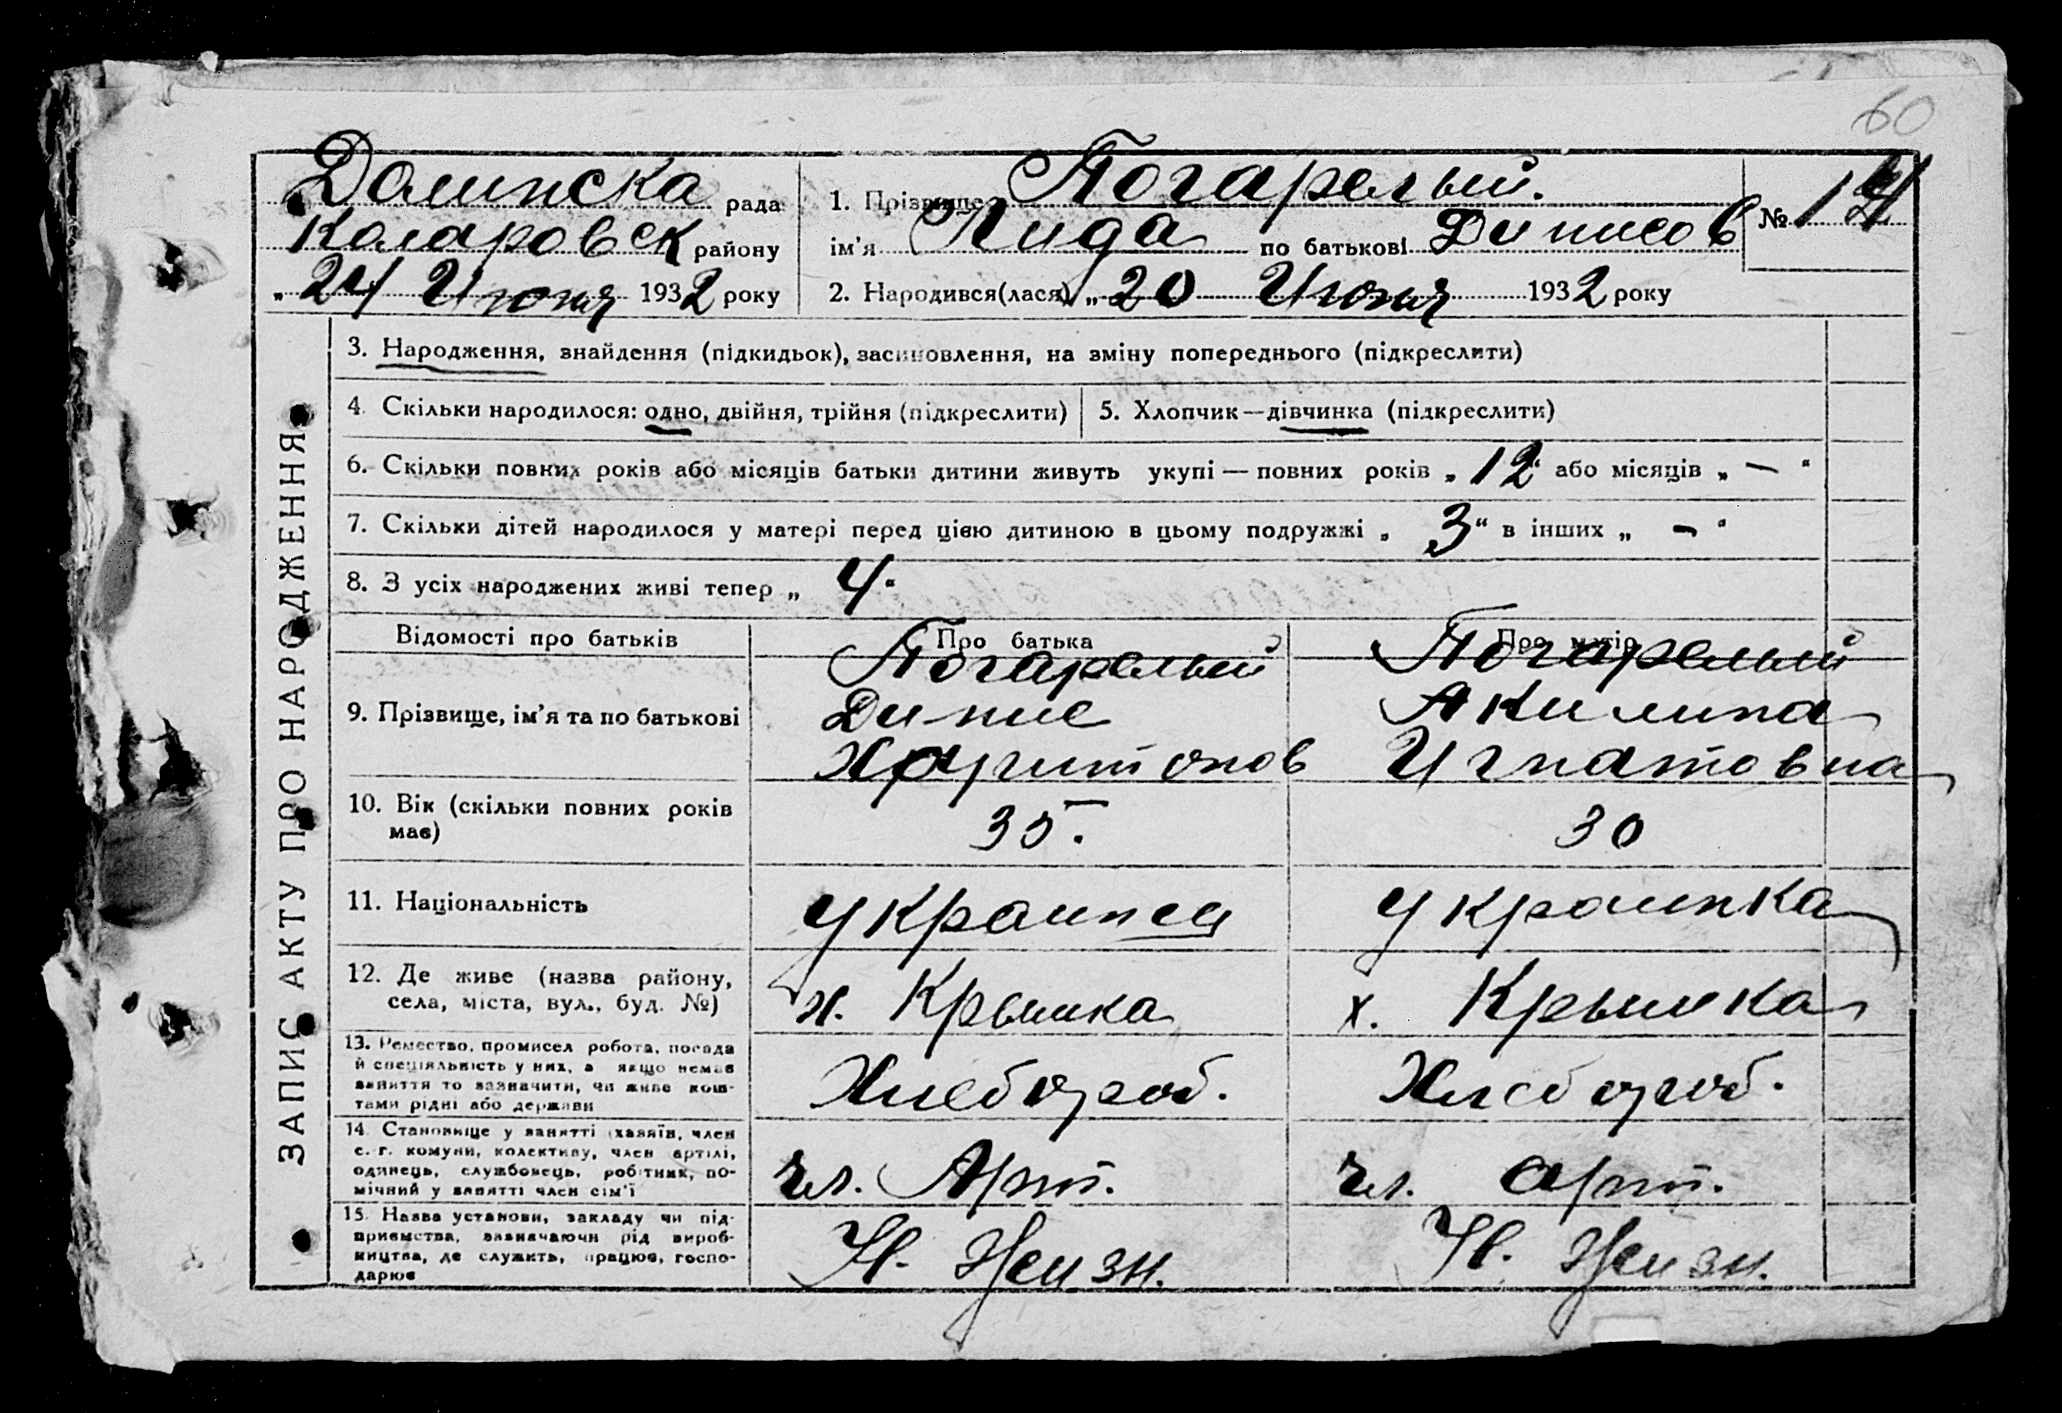 60
Долинска рада
Коларовск району
„24 Июня 1932 року
1. Прізвище Погарелый.
ім'я Лида по батькові Динисов
№ 14
2. Народився(лася) „20 Июня 1932 року
ЗАПИС АКТУ ПРО НАРОДЖЕННЯ
3. Народження, знайдення (підкидьок), засиновлення, на зміну попереднього (підкреслити)
4. Скільки народилося: одно, двійня, трійня (підкреслити)
5. Хлопчик—дівчинка (підкреслити)
6. Скільки повних років або місяців батьки дитини живуть укупі — повних років „12“ або місяців „—“
7. Скільки дітей народилося у матері перед цією дитиною в цьому подружжі „3“ в інших „—“
8. З усіх народжених живі тепер „4“
Відомості про батьків
Про батька
Про матір
9. Прізвище, ім'я та по батькові
Погарелый
Динис
Харитонов
Погарелый
Акилина
Игнатовна
10. Вік (скільки повних років
має)
35.
30
11. Національність
Украинец
Украинка
12. Де живе (назва району,
села, міста, вул., буд. №)
х. Крымка
х. Крымка
13. Ремество, промисел робота, посада
й спеціяльність у них, а якщо немає
заняття то зазначити, чи живе кош-
тами рідні або держави
Хлебороб.
Хлебороб.
14. Становище у занятті (хазяїн, член
с.-г. комуни, колективу, член артілі,
одинець, службовець, робітник, по-
мічний у занятті член сім'ї
Чл. Арт.
Чл. арт.
15. Назва установи, закладу чи під-
приємства, зазначаючи рід вироб-
ництва, де служить, працює, госпо-
дарює
Н. Жизн.
Н. Жизн.